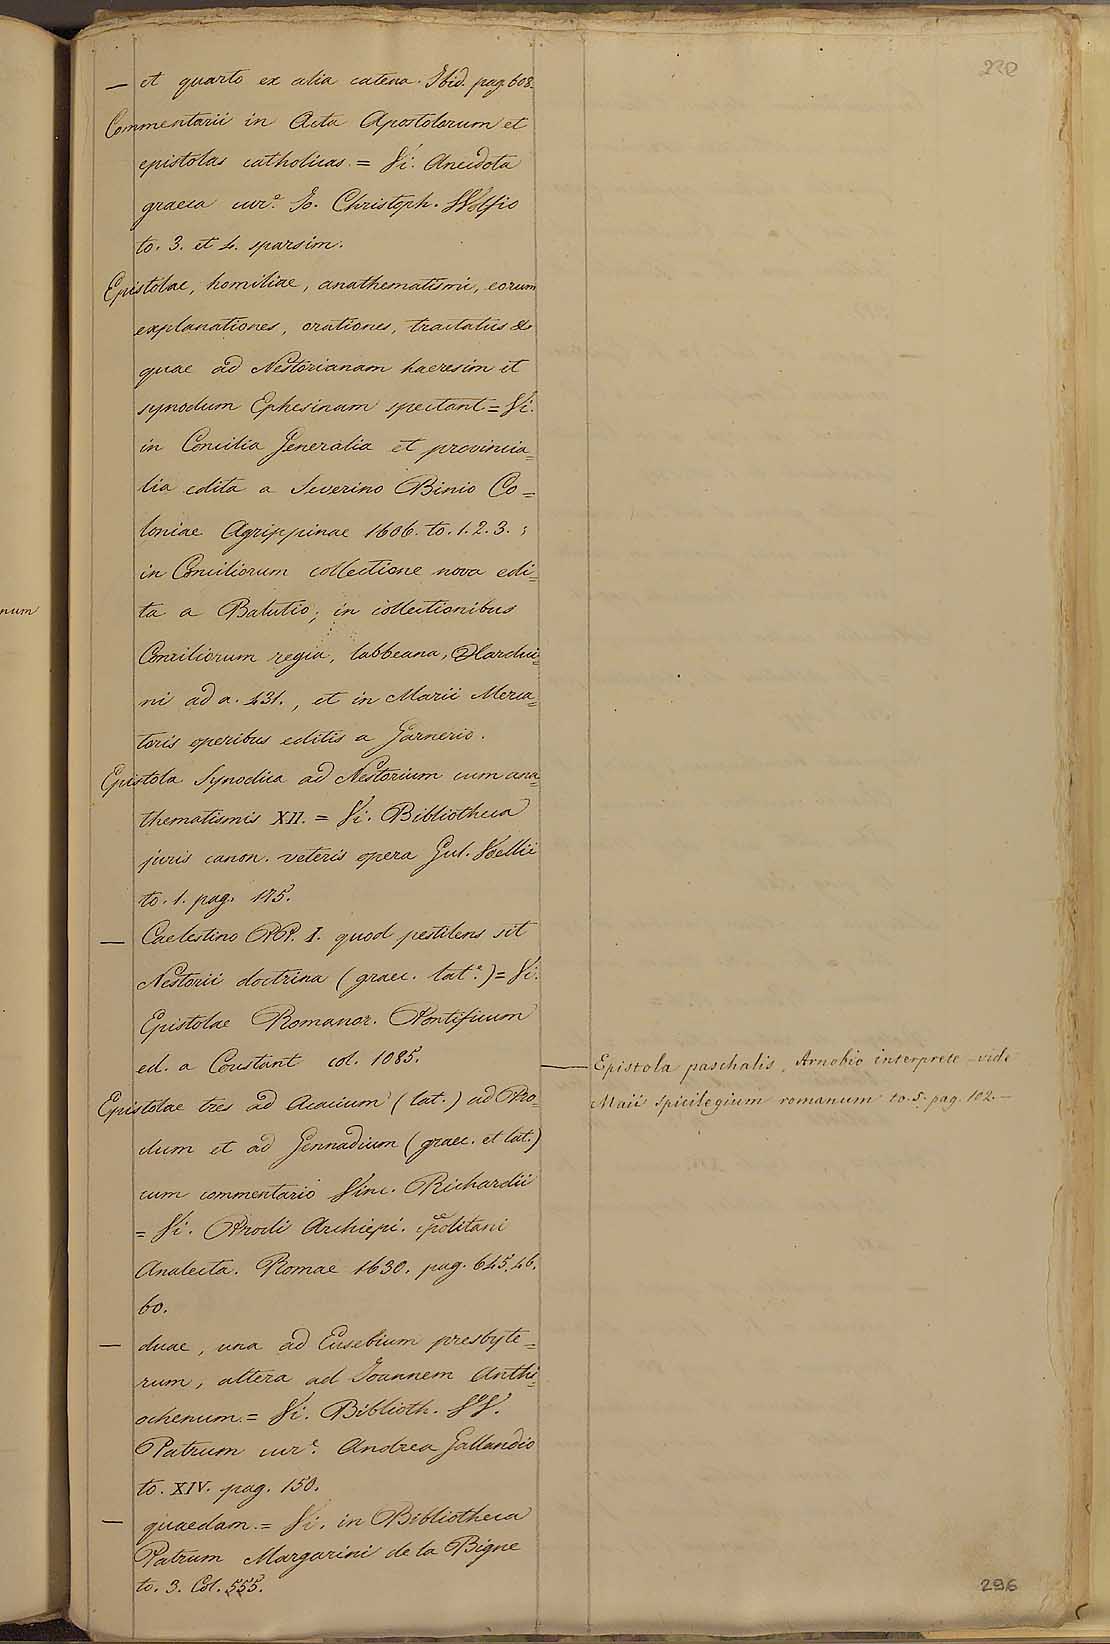 230
— et quarto ex alia catena. Ibid. pag. 608.
Commentarii in Acta Apostolorum et
epistolas catholicas. = Vi. Anecdota
graeca cur.e Jo. Christoph. Wolfio
to. 3. et 4. sparsim.
Epistolae, homiliae, anathematismi, eorum
explanationes, orationes, tractatus &
quae ad Nestorianam haeresim et
synodum Ephesinam spectant = Vi.
in Concilia Generalia et provincia=
lia edita a Severino Binio Co=
loniae Agrippinae 1606. to. 1. 2. 3. ;
in Conciliorum collectione nova edi=
ta a Balutio; in collectionibus
Conciliorum regia, labbeana, Hardui=
ni ad a. 431., et in Marii Merca=
toris operibus editis a Garnerio.
Epistola Synodica ad Nestorium cum ana=
thematismis XII. = Vi. Bibliotheca
juris canon. veteris opera Gul. Voellii
to. 1. pag. 175.
— Caelestino PP. I. quod pestilens sit
Nestorii doctrina (graec. lat.e) = Vi.
Epistolae Romanor. Pontificum
ed. a Coustant col. 1085.
Epistolae tres ad Acacium (lat.) ad Pro=
clum et ad Gennadium (graec. et lat.)
cum commentario Vinc. Richardii
= Vi. Procli Archiepi. cpolitani
Analecta. Romae 1630. pag. 645. 46.
60.
— duae, una ad Eusebium presbyte=
rum, altera ad Joannem Anthi=
ochenum. = Vi. Biblioth. VV.
Patrum cur.e Andrea Gallandio
to. XIV. pag. 150.
— quaedam. = Vi. in Bibliotheca
Patrum Margarini de la Bigne
to. 3. Col. 555.
— Epistola paschalis, Arnobio interprete - vide
Maii spicilegium romanum to. 5. pag. 102. —
num
296